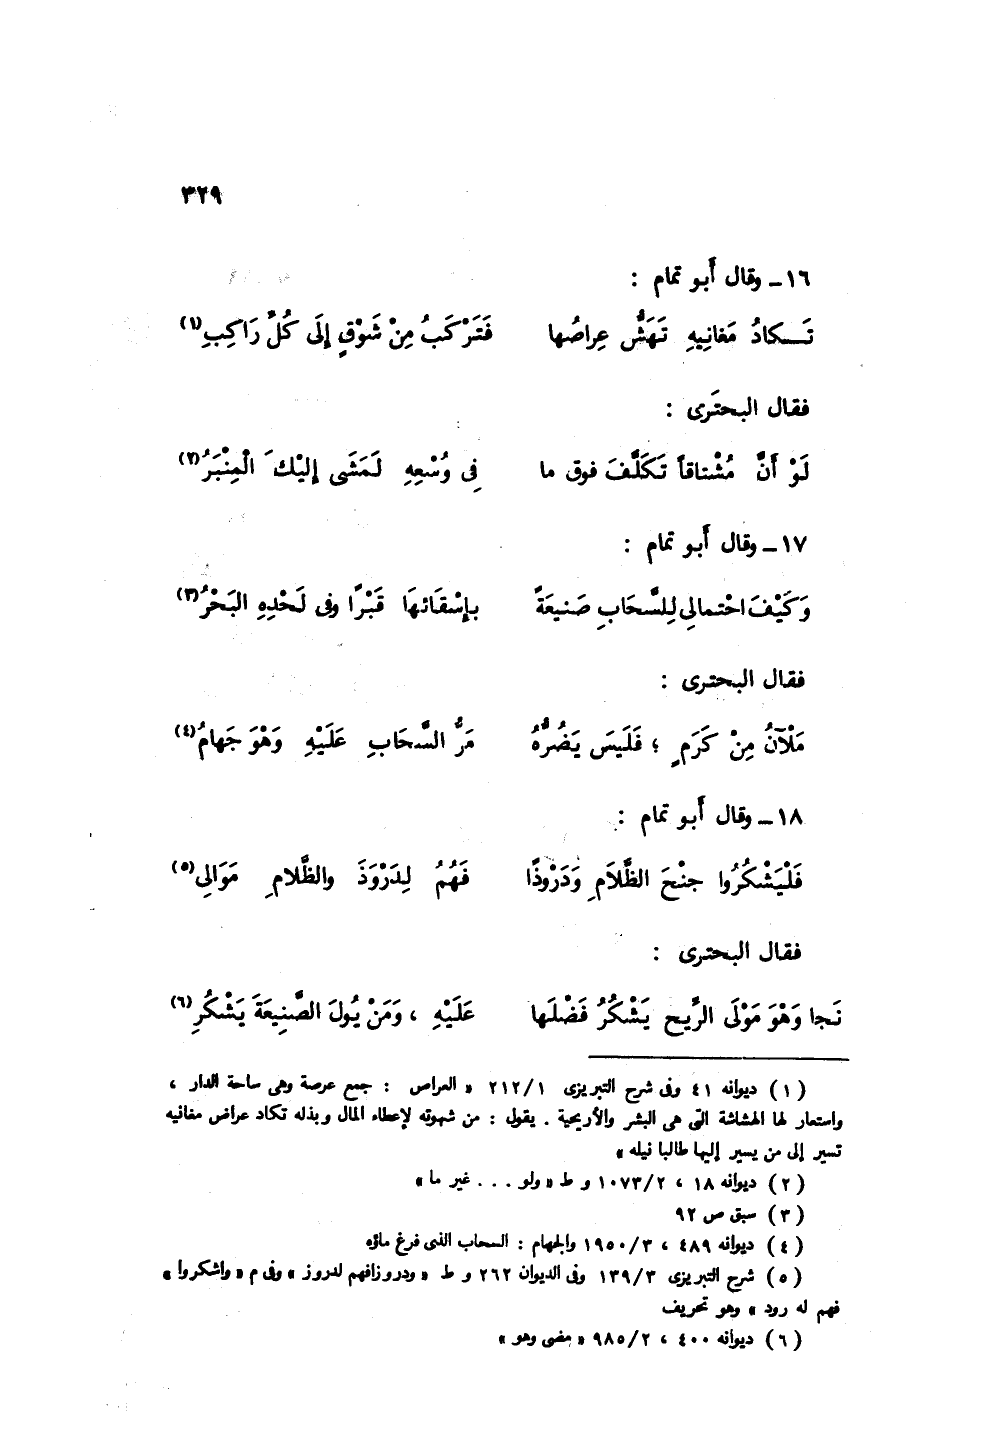 ٣٢٩
١٦ــ وقال أَبو تمام :
تَــكادُ مَغانِيهِ تَهَشُّ عِراصُها فَتَرْكَبُ مِنْ شَوْقٍ إِلَى كُلِّ رَاكِبِ(١)
فقال البحتَرى :
لَوْ أَنَّ مُشْتاقاً تَكَلَّفَ فوق ما فِى وُسْعِهِ لَمَشَى إِليْكَ الْمِنْبَرُ(٢)
١٧ــ وقال أَبو تمام :
وَكَيْفَ احْتمالِى لِلسَّحَابِ صَنيعَةً بإِسْقَائهَا قَبْرًا وفى لَحْدِهِ البَحْرُ(٣)
فقال البحترى :
مَلْآنُ مِنْ كَرَمٍ ؛ فَلَيسَ يَضُرُّهُ مَرُّ السَّحَابِ عَلَيْهِ وَهْوَ جَهامُ(٤)
١٨ــ وقال أَبو تمام :
فَلْيَشْكُرُوا جنْحَ الظَّلاَمِ وَدَرْوذًا فَهُمُ لِدَرْوَذَ والظَّلامِ مَوَالِى(٥)
فقال البحترى :
نَجا وَهْوَ مَوْلَى الرِّيحِ يَشْكُرُ فَضْلَها عَلَيْهِ ، وَمَنْ يُولَ الصَّنِيعَةَ يَشْكُرِ(٦)
(١) ديوانه ٤١ وفى شرح التبريزى ٢١٢/١ « العراص : جمع عرصة وهى ساحة الدار ،
واستعار لها الهشاشة التى هى البشر والأريحية . يقول : من شهوته لإعطاء المال وبذله تكاد عراض مغانيه
تسير إلى من يسير إليها طالبا نيله »
(٢) ديوانه ١٨ ، ١٠٧٣/٢ و ط « ولو . . . غير ما »
(٣) سبق ص ٩٢
(٤) ديوانه ٤٨٩ ، ١٩٥٠/٣ والجهام : السحاب الذى فرغ ماؤه
(٥) شرح التبريزى ١٣٩/٣ وفى الديوان ٢٦٢ و ط « ودروزافهم لدروز » وفى م « واشكروا »
فهم له رود » وهو تحريف
(٦) ديوانه ٤٠٠ ، ٩٨٥/٢ « مضى وهو »